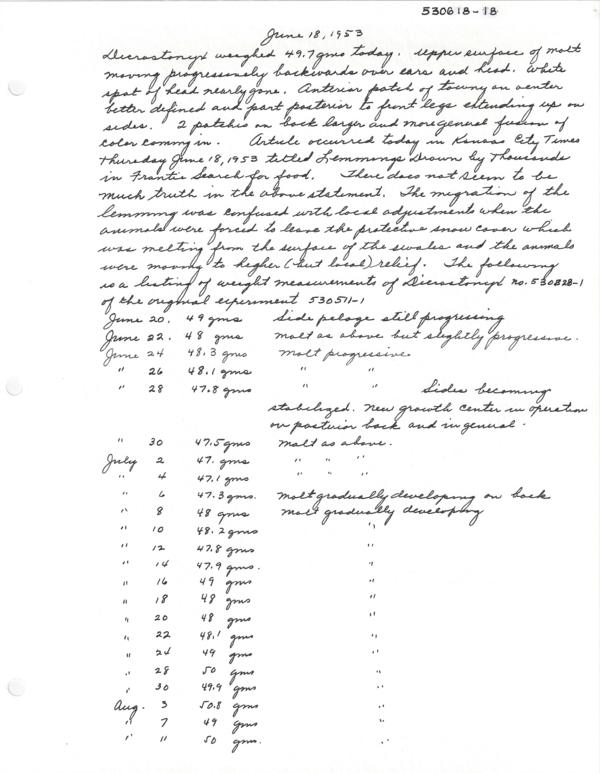 530618-18
June 18, 1953
Dicrostonyx weighed 49.7 gms today. Upper surface of molt
moving progressively backwards over ears and head. White
spot of head nearly gone. Anterior patch of tawny on venter
better defined and part posterior to front legs extending up on
sides. 2 patches on back larger and more general fusion of
color coming in. Article occurred today in Kansas City Times
Thursday June 18, 1953 titled Lemmings Drown by Thousands
in Frantic Search for food. There does not seem to be
much truth in the above statement. The migration of the
lemming was confused with local adjustments when the
animals were forced to leave the protective snow cover which
was melting from the surface of the swales and the animals
were moving to higher (but local) relief. The following
is a listing of weight measurements of Dicrostonyx no. 530828-1
of the original experiment 530511-1
June 20. 49 gms Side pelage still progressing
June 22. 48 gms molt as above but slightly progressive.
June 24 48.3 gms molt progressive
" 26 48.1 gms " "
" 28 47.8 gms " " Sides becoming
stabilized. New growth center in operation
on posterior back and in general.
" 30 47.5 gms molt as above.
July 2 47. gms " " "
" 4 47.1 gms " " "
" 6 47.3 gms. molt gradually developing on back
" 8 48 gms molt gradually developing
" 10 48.2 gms "
" 12 47.8 gms "
" 14 47.9 gms. "
" 16 49 gms "
" 18 48 gms "
" 20 48 gms "
" 22 48.1 gms "
" 24 49 gms "
" 28 50 gms "
" 30 49.9 gms "
Aug. 3 50.8 gms "
" 7 49 gms "
" 11 50 gms. "